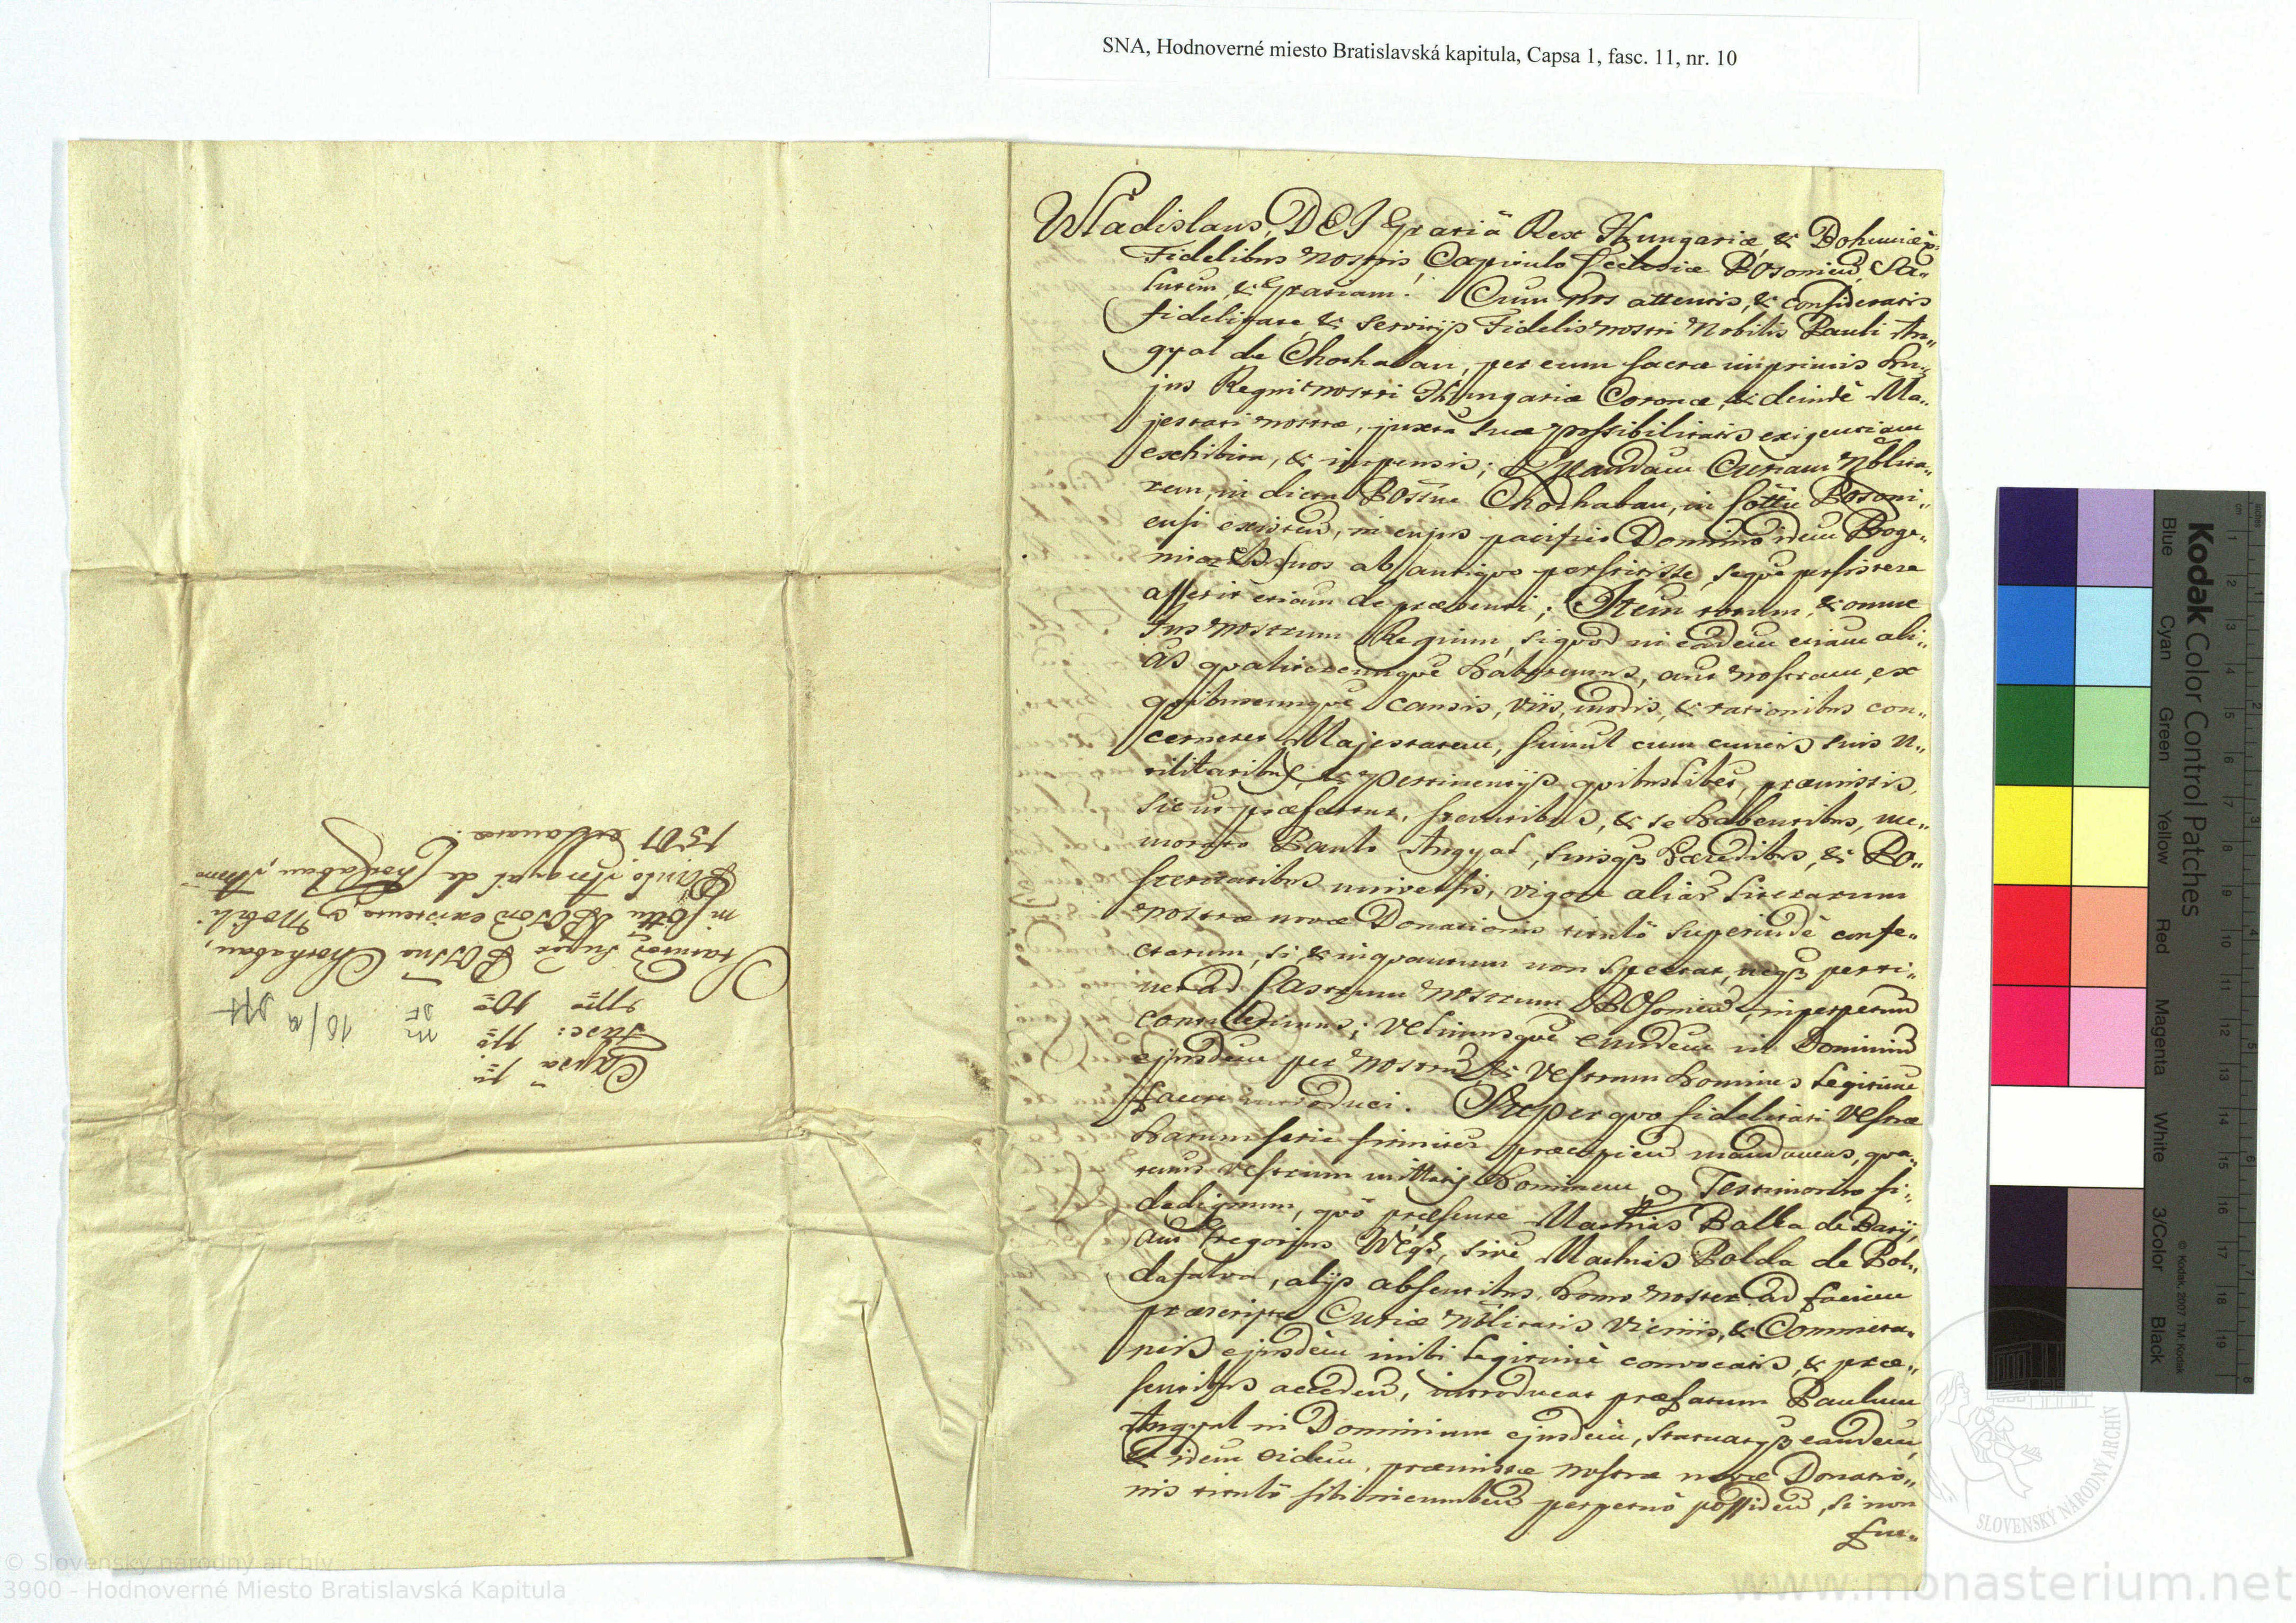 SNA, Hodnoverné miesto Bratislavská kapitula, Capsa 1, fasc. 11, nr. 10
Wladislaus, DEI Gratiâ Rex Hungariæ, & Bohemiæ p.
Fidelibus nostris, Capitulo Ecclesiæ Posonien, Sa„
lutem, & Gratiam! Cum nos attentis, & consideratis
fidelitate, & servitijs Fidelis nostri Nobilis Pauli An„
gyal de Chorhaban, per eum sacræ inprimis hu„
jus Regni nostri Hungariæ Coronæ, & deindè Ma„
jestati nostræ, juxta suæ possibilitatis exigentiam
exhibitis, & impensis; Quandam Curiam Nobilita„
rem, in dicta Possne Chorhaban, in Cottu Posoni„
ensi existen, in cujus pacifico Dominio idem Proge„
nitores suos ab antiquo perstitisse, seque persistere
asserit etiam de præsenti; Item totum, & omne
Jus nostrum Regium, siquod in eadem etiam ali„
às qualitercunque haberemus, aut nostram, ex
quibuscunque causis, viis, modis, & rationibus con„
cerneret Majestatem, simul cum cunctis suis u„
tilitatibus, & pertinentijs quibuslibet, præmissis,
sicut præfertur, stantibus, & se habentibus, me„
morato Paulo Angyal, suisq; Hæredibus, & Po„
steritatibus universis, vigore aliar Literarum
nostræ novæ Donationis titulô superindè confe„
ctarum, si, & inquantum non spectat, neq; perti„
net ad Castrum nostrum Posonien, inperpetuum
contulerimus; Velimusque eundem in Dominium
ejusdem per nostrum, & Vestrum homines legitime
facere introduci. Super quo fidelitati Vestræ
harum serie firmiter præcipien mandamus, qua„
tenus Vestrum mittatis hominem pro Testimonio fi„
dedignum, quô præsente Mathias Balka de Bary,
aut Gregorius Végh, sive Mathias Bolda de Bol„
dafalva, alijs absentibus, homo noster ad faciem
præscriptæ Curiæ Nobilitaris Vicinis, & Commeta„
neis ejusdem inibi legitimè convocatis, & præ„
sentibus acceden, introducat præfatum Paulum
Angyal in Dominium ejusdem, statuatq; eandem,
& idem eidem, præmissæ nostræ novæ Donatio„
nis titulô sibi incumben perpetuô possiden, si non
fue„
Capsa 1a
Fasc: 11o
Nro 10o
Statutor super Possne Chorhaban,
in Cottu Poson existente, pro Nobili
Paulo Angyal de Chorhaban, Anno
1501 emanatæ.
Kodak Color Control Patches
Blue
Cyan
Green
Yellow
Red
Magenta
White
3/Color
Black
© Kodak, 2007 TM: Kodak
SLOVENSKÝ NÁRODNÝ ARCHÍV
© Slovenský národný archív
3900 - Hodnoverné Miesto Bratislavská Kapitula
www.monasterium.net